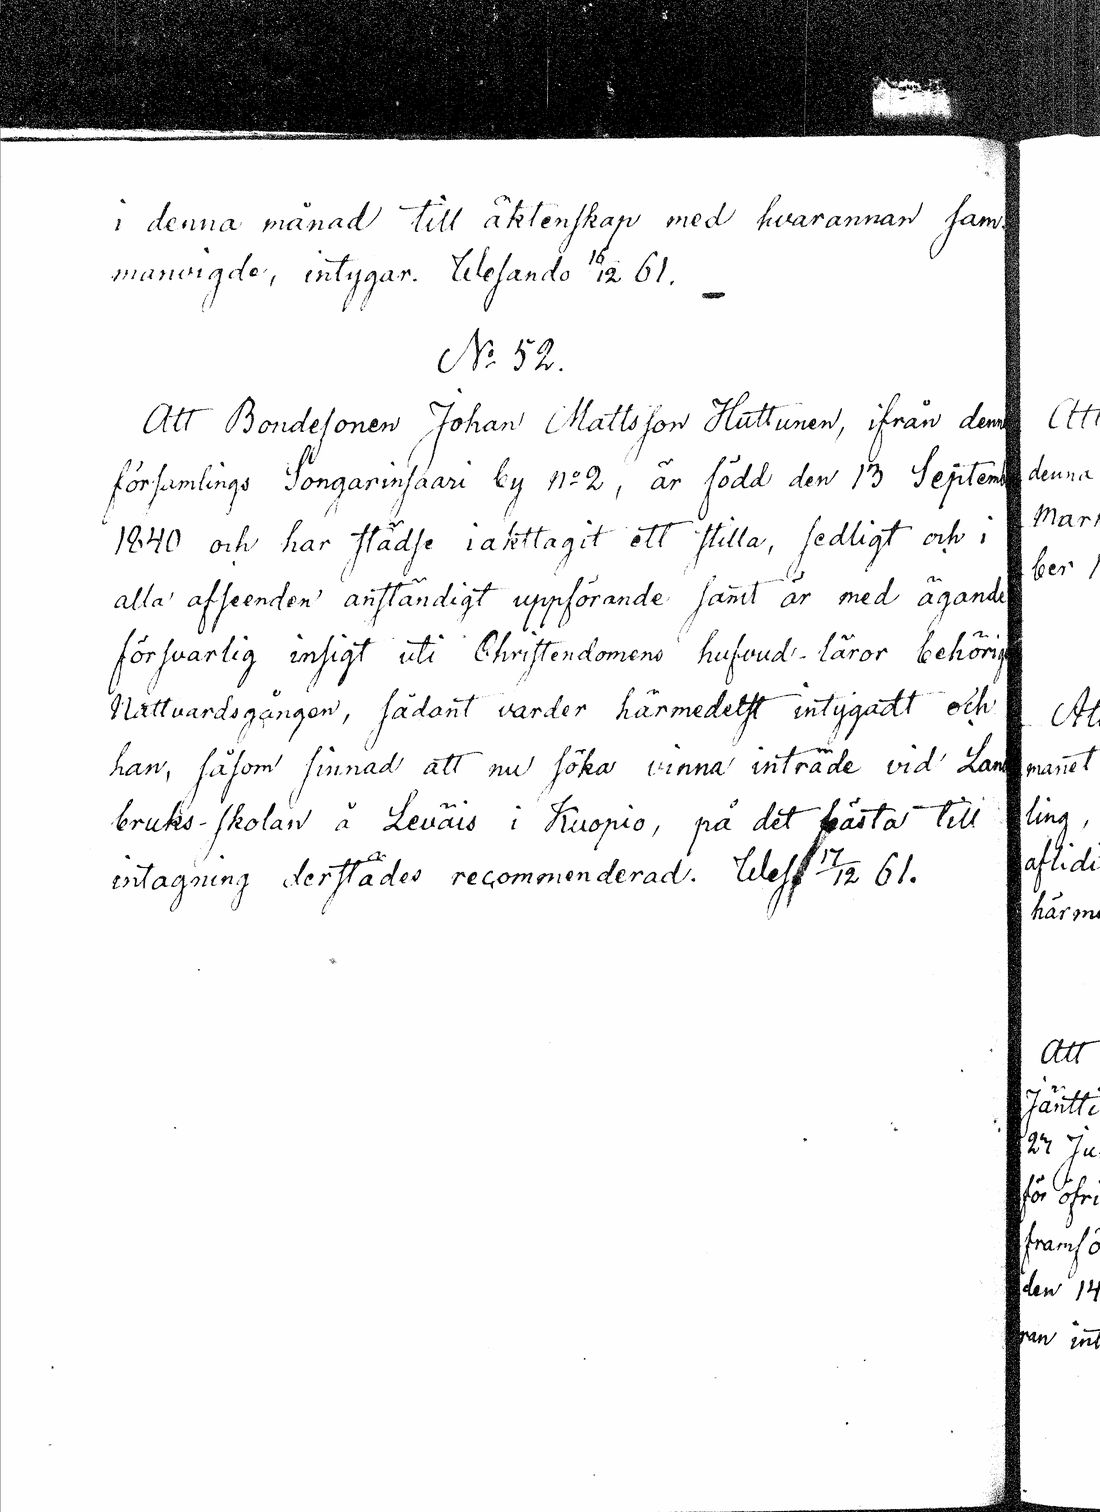 i denna månad till äktenskap med hvarannan sam-
manvigde, intygar. Wesando 16/12 61.
No 52.
Att Bondesonen Johan Mattsson Huttunen, ifrån denn
församlings Songarinsaari by no 2, är född den 13 Septemb
1840 och har städse iakttagit ett stilla, sedligt och i
alla afseenden anständigt uppförande samt är med ägande
försvarlig insigt uti Christendomens hufvud-läror behörig
Nattvardsgången, sådant varder härmedelst intygadt och
han, såsom sinnad att nu söka vinna inträde vid Land
bruks-skolan å Leväis i Kuopio, på det bästa till
intagning derstädes recommenderad. Wes. 17/12 61.
Att
denna
Mar
ber 1
manet
ling,
aflidi
härme
Att
Jäntti
27 Ju
för öfri
framfö
den 14
ran int